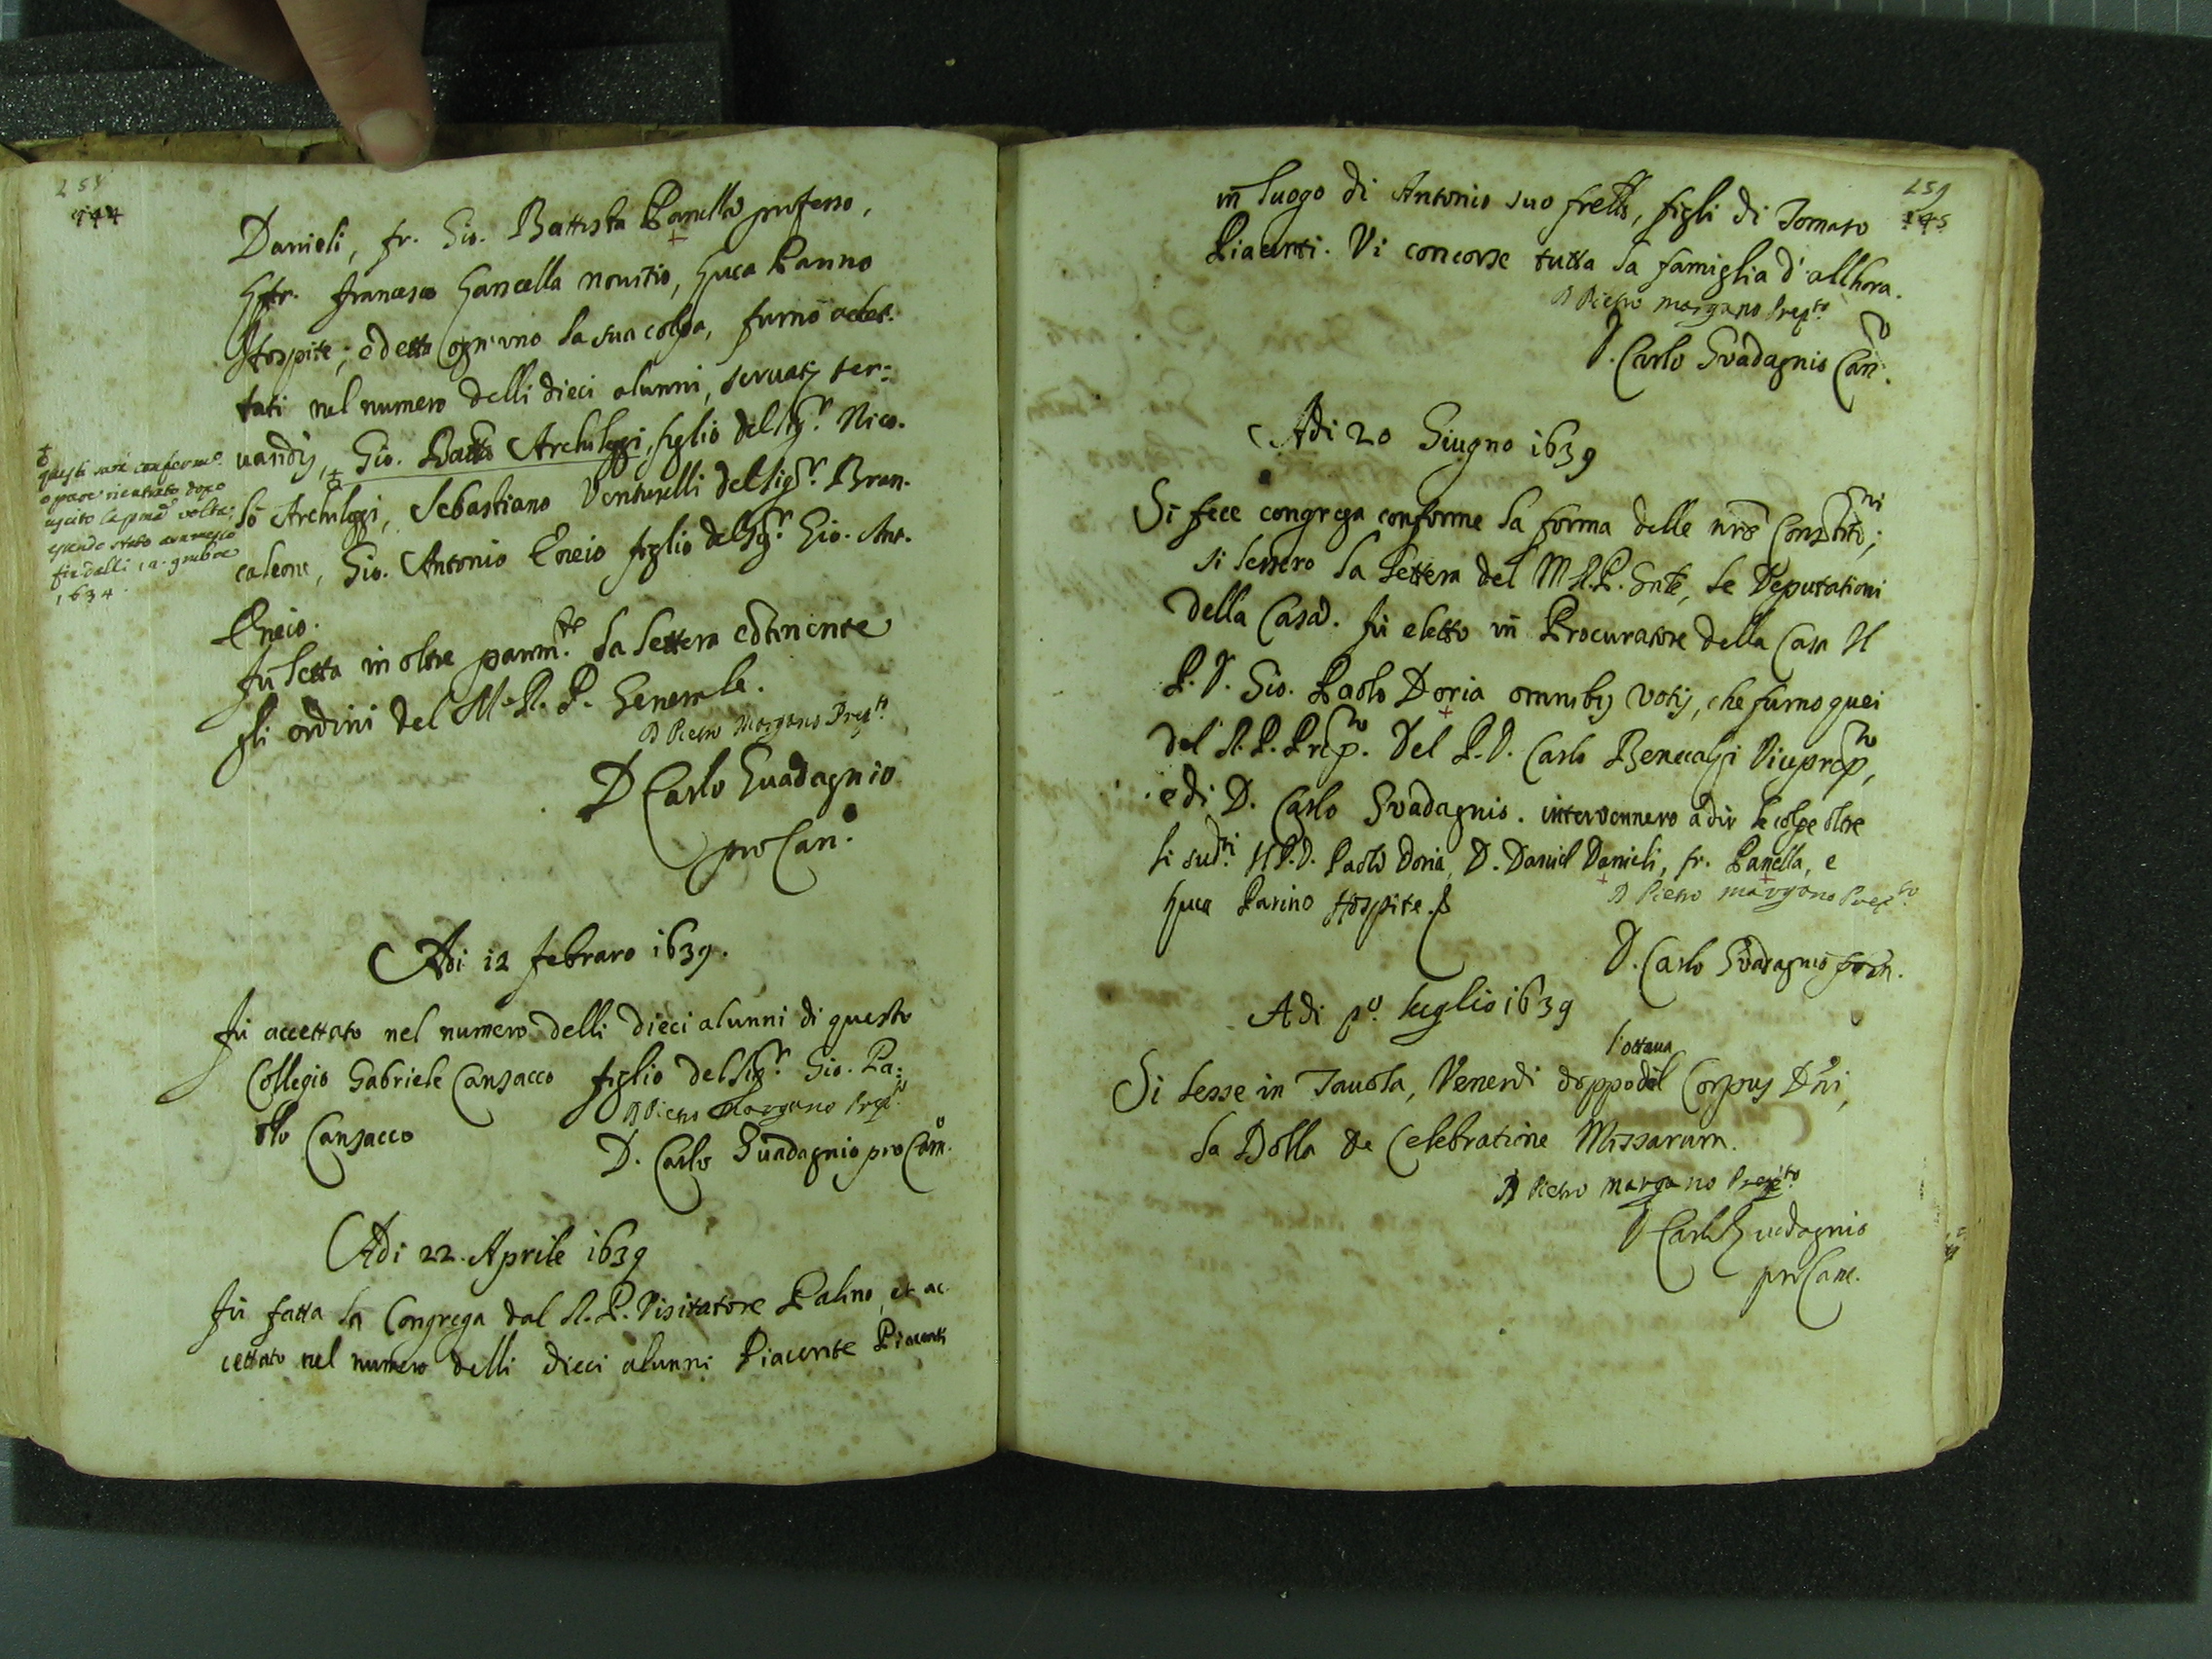 258
144
Danieli, fr. Gio. Battista Panella professo,
fr. Francesco Gancella nouitio, Luca Panno
Hospite; e detta ogn'uno la sua colpa, furnō accet:
tati nel numero delli dieci alunni, seruatis ser:
uandis, Gio. Batta Archileggi, figlio del Sigr. Nico.
lò Archileggi, Sebastiano Venturelli del Sigr. Bran.
caleone, Gio. Antonio Eneio figlio del Sigr. Gio. Ant.
Eneio.
Fu letta in oltre parimte. la lettera cōtinente
gli ordini del M. R. P. Generale.
D Pietro Morgano Prepto.
D Carlo Guadagnio
pro Can.
questi
dopo
uscito la volta;
essendo stato
1634.
Adi 12 Febraro 1639.
Fù accettato nel numero delli dieci alunni di questo
Collegio Gabriele Cansacco figlio del Sigr. Gio. Pa:
olo Cansacco
D Pietro Morgano Prepto.
D. Carlo Guadagnio pro Can.
Adi 22. Aprile 1639
Fù fatta la Congrega dal R. P. Visitatore Palino, et ac
cettato nel numero delli dieci alunni Piacente Piacenti
259
145
in luogo di Antonio suo frello, figli di Tomaso
Piacenti. Vi concorse tutta la famiglia d'allhora.
D Pietro Morgano Prepto.
D. Carlo Guadagnio Can.
Adi 20 Giugno 1639
Si fece congrega conforme la forma delle nrē Constitni;
si lessero la lettera del M R. P. Gnle, le Deputationi
della Casa. Fù eletto in Procuratore della Casa Il
P. D. Gio. Paolo Doria omnibus votis, che furno quei
del R. P. Prepto. Del P. D. Carlo Benecalsi Viceprepto,
e di D. Carlo Guadagnio. intervennero à dir le colpe oltre
li sudti. Il P. D. Paolo Doria, D. Daniel Danieli, fr. Panella, e
Luca Parino Hospite.
D Pietro Morgano Prepto.
D. Carlo Guadagnio
Adi po. luglio 1639
l'ottaua
Si lesse in Tauola, Venerdi doppo del Corpus Dni,
la Bolla de Celebratione Missarum.
D Pietro Morgano Prepto.
D Carlo Guadagnio
pro Canc.